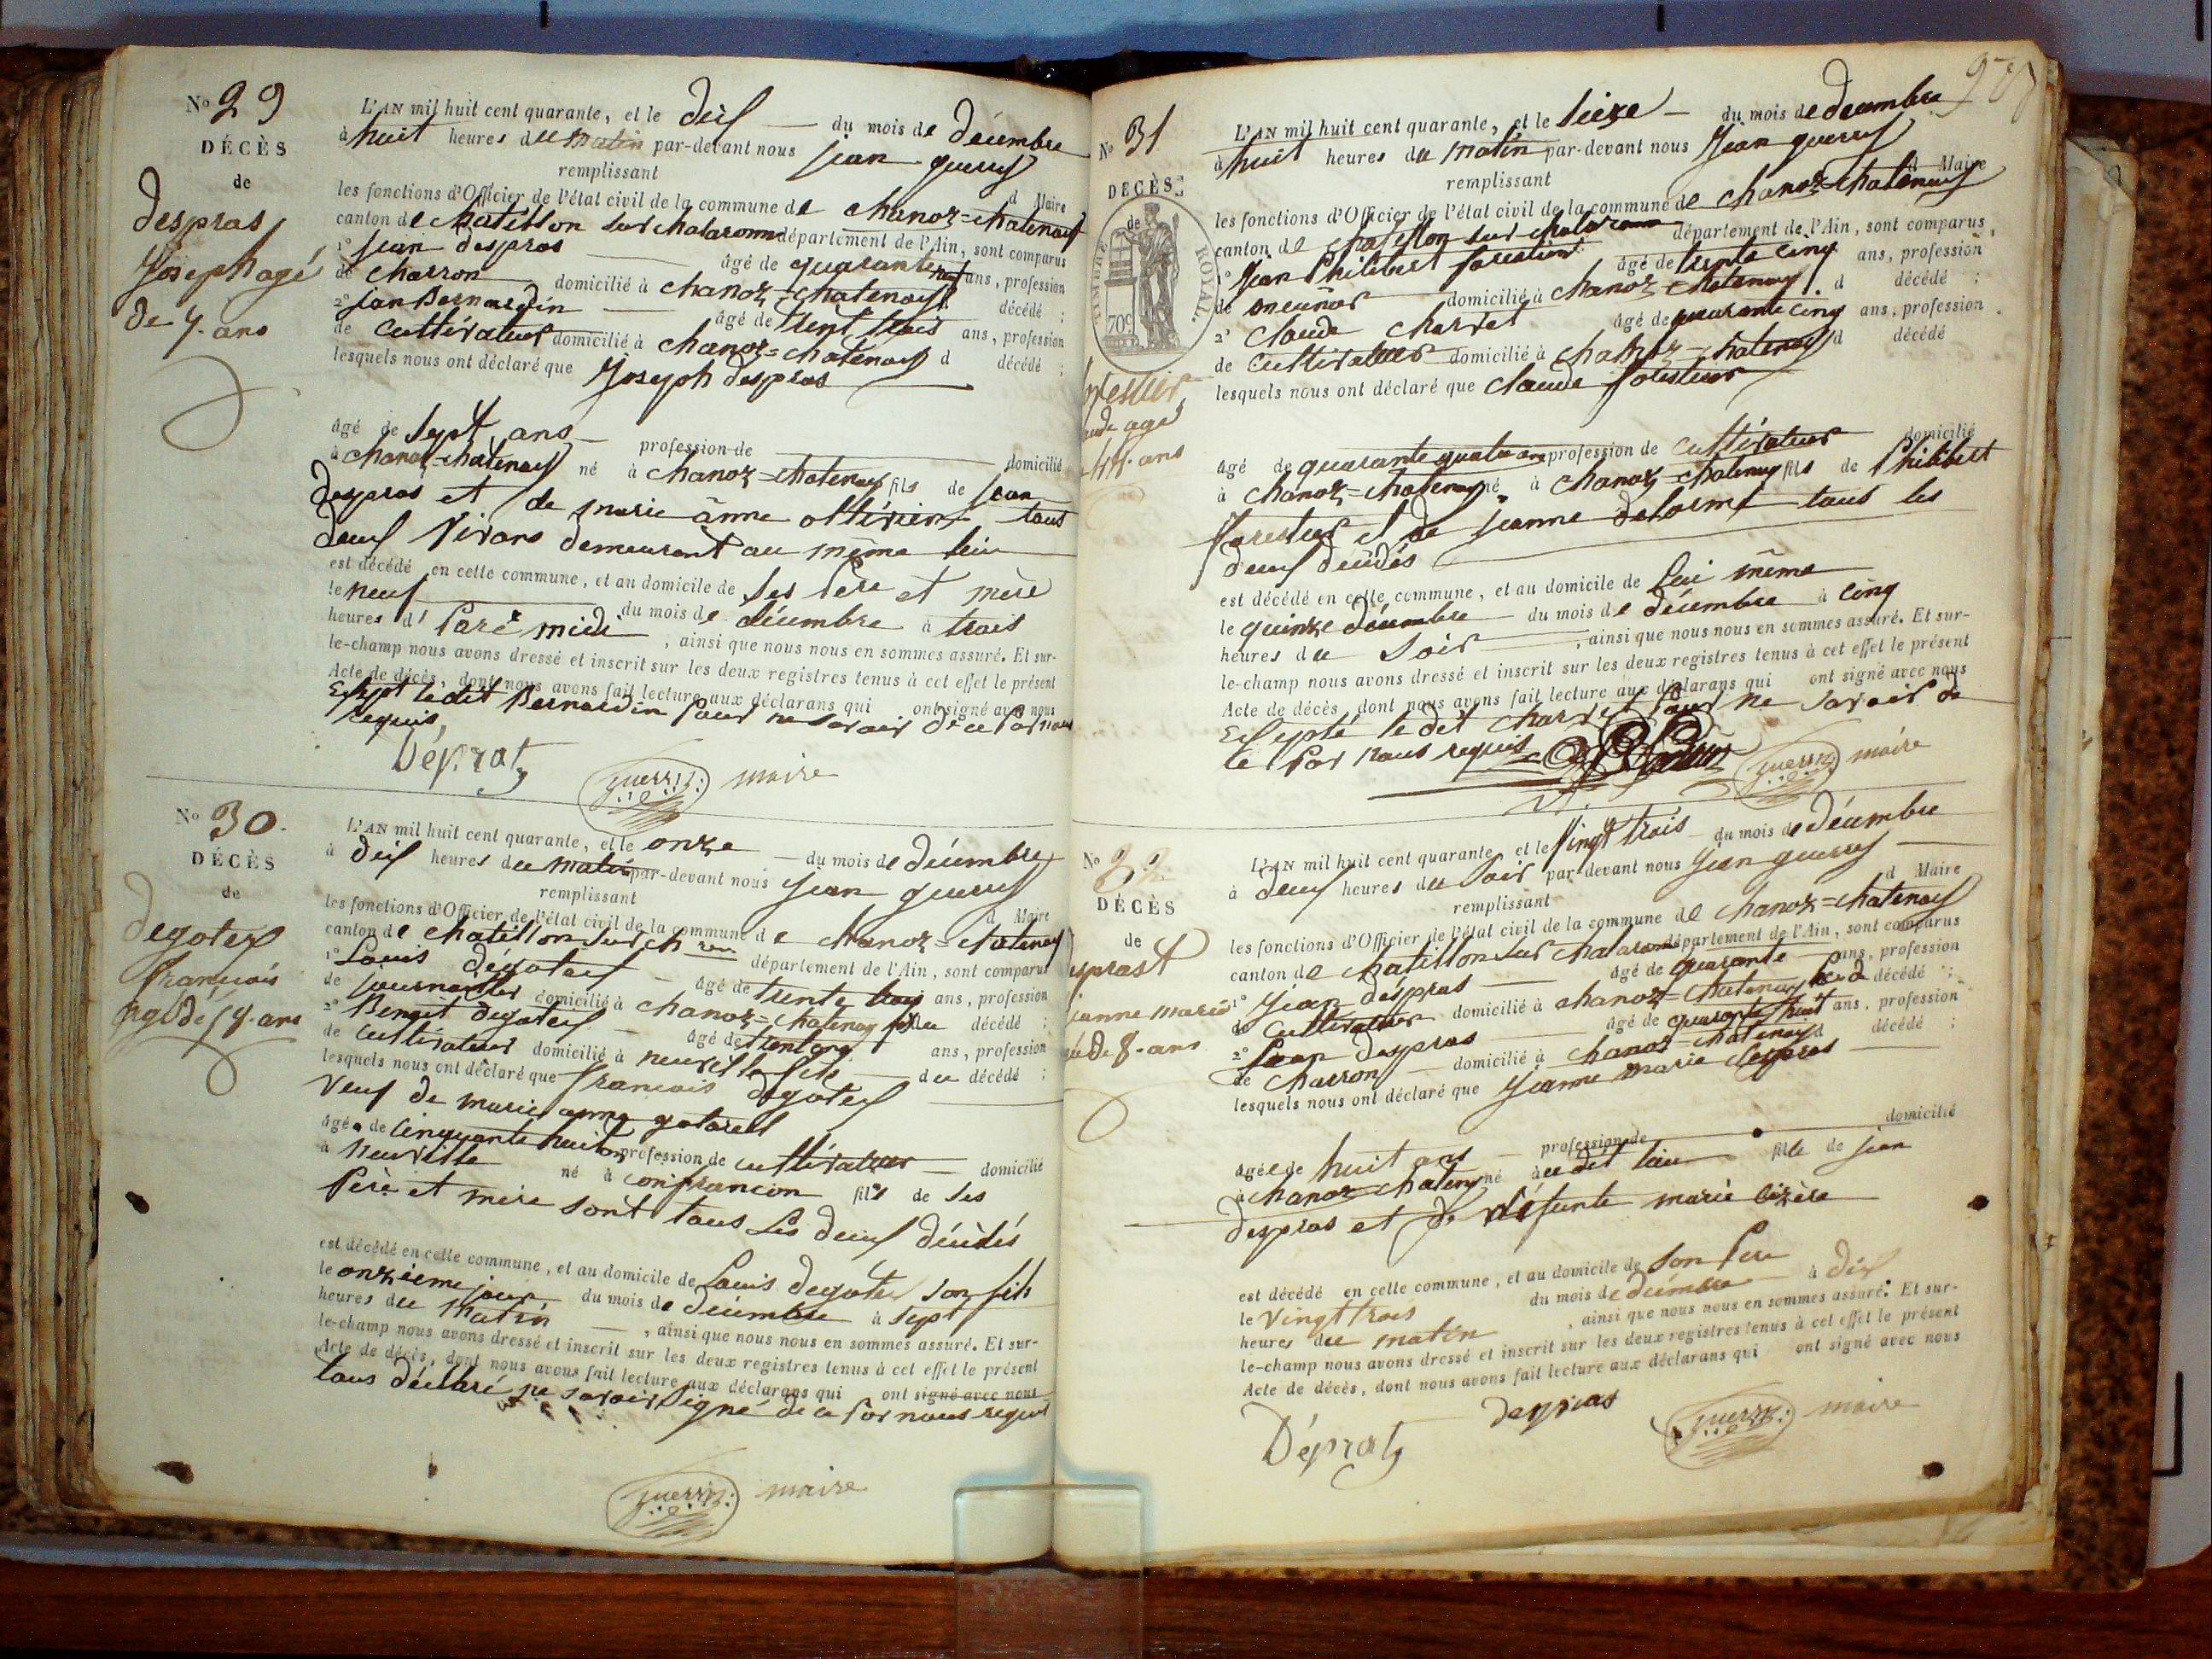 No 29
DÉCÈS
de
despras
Joseph agé
de 7. ans
L'AN mil huit cent quarante, et le dix — du mois de décembre
à huit heures du matin par-devant nous jean guerry
remplissant d Maire
les fonctions d'Officier de l'état civil de la commune de chanoz=chatenay
canton de chatillon sur chalaronne département de l'Ain, sont comparus
1° jean despras — âgé de quarante neuf ans, profession
de charron domicilié à chanoz=chatenay. décédé ;
2° Jean Bernardin — âgé de trent trois ans, profession
de cultivateur domicilié à chanoz=chatenay d décédé ;
lesquels nous ont déclaré que Joseph despras
âgé de sept ans — profession de domicilié
à chanoz=chatenay né à chanoz=chatenay fils de jean
despras et de marie anne tous
deux vivans demeurant au même lieu
est décédé en cette commune, et au domicile de ses père et mère
le neuf du mois de décembre à trois
heures d' midi , ainsi que nous nous en sommes assuré. Et sur-
le-champ nous avons dressé et inscrit sur les deux registres tenus à cet effet le présent
Acte de décès, dont nous avons fait lecture aux déclarans qui ont signé avec nous
Exsepté ledit Bernardin pour ne savoir de ce par nous
requis
Déprat
guerry maire
No 30.
DÉCÈS
de
degotex
francois
agé de 58. ans
L'AN mil huit cent quarante, et le onze — du mois de décembre
à dix heures du matin par-devant nous jean guerry
remplissant d Maire
les fonctions d'Officier de l'état civil de la commune de chanoz=chatenay
canton de chatillon sur ch ron département de l'Ain, sont comparus
1° Louis degotex — âgé de trente trois ans, profession
de journallier domicilié à chanoz=chatenay fils du décédé ;
2° Benoit degotex — âgé de ans, profession
de cultivateur domicilié à neuville fils — du décédé ;
lesquels nous ont déclaré que francois degotex
veuf de marie anne
âgé de cinquante huit ans profession de cultivateur — domicilié
à neuville né à confrancon fils de ses
père et mère sont tous les deux décédés
est décédé en cette commune, et au domicile de Louis degotex son fils
le onzieme jour du mois de décembre à sept
heures du matin — , ainsi que nous nous en sommes assuré. Et sur-
le-champ nous avons dressé et inscrit sur les deux registres tenus à cet effet le présent
Acte de décès, dont nous avons fait lecture aux déclarans qui ont signé avec nous
tous déclaré ne savoir signé de ce par nous requis
guerry maire
No 31
DÉCÈS
de
TIMBRE ROYAL.
70c
agé
44. ans
L'AN mil huit cent quarante, et le seize — du mois de décembre
à huit heures du matin par-devant nous Jean guerry
remplissant d Maire
les fonctions d'Officier de l'état civil de la commune de chanoz=chatenay
canton de chatillon sur chalaronne département de l'Ain, sont comparus
1° Jean Philibert forestier âgé de trente cinq ans, profession
de meunier domicilié à chanoz=chatenay. d décédé ;
2° claude charvet âgé de quarante cinq ans, profession
de cultivateur domicilié à chanoz=chatenay d décédé
lesquels nous ont déclaré que claude forestier
âgé de quarante quatre ans profession de cultivateur domicilié
à chanoz=chatenay né à chanoz=chatenay fils de Philibert
forestier et de jeanne delorme tous les
deux décédés
est décédé en cette commune, et au domicile de lui même
le quinze décembre du mois de décembre à cinq
heures du soir , ainsi que nous nous en sommes assuré. Et sur-
le-champ nous avons dressé et inscrit sur les deux registres tenus à cet effet le présent
Acte de décès, dont nous avons fait lecture aux déclarans qui ont signé avec nous
Exsepté le dit charvet pour ne savoir de
ce par nous requis
guerry maire
No 32
DÉCÈS
de
esprast
jeanne marie
de 8. ans
L'AN mil huit cent quarante et le vingt trois du mois de décembre
à deux heures du soir par-devant nous jean guerry
remplissant d Maire
les fonctions d'Officier de l'état civil de la commune de chanoz=chatenay
canton de chatillon sur chalaronne département de l'Ain, sont comparus
1° Jean despras — âgé de quarante ans, profession
de cultivateur domicilié à chanoz=chatenay décédé ;
2° Jean despras âgé de quarante huit ans, profession
de charron domicilié à chanoz=chatenay d décédé ;
lesquels nous ont déclaré que jeanne marie despras
âgée de huit ans — profession de domicilié
à chanoz chatenay né au dit lieu fille de jean
despras et de défunte marie
est décédé en cette commune, et au domicile de son père
le vingt trois du mois de décembre à dix
heures du matin , ainsi que nous nous en sommes assuré. Et sur-
le-champ nous avons dressé et inscrit sur les deux registres tenus à cet effet le présent
Acte de décès, dont nous avons fait lecture aux déclarans qui ont signé avec nous
Déprat despras guerry maire